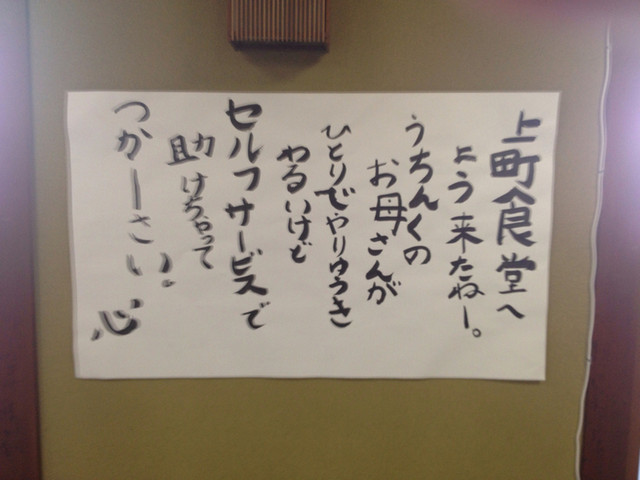 上町食堂へ
よう来たねー。
うちんくの
お母さんが
ひとりでやりゆうき
わるいけど
セルフサービスで
助けちゃって
つかーさい。心